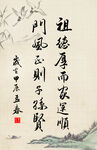 祖德厚而家運順
門風正則子孫賢
歲在甲辰孟春